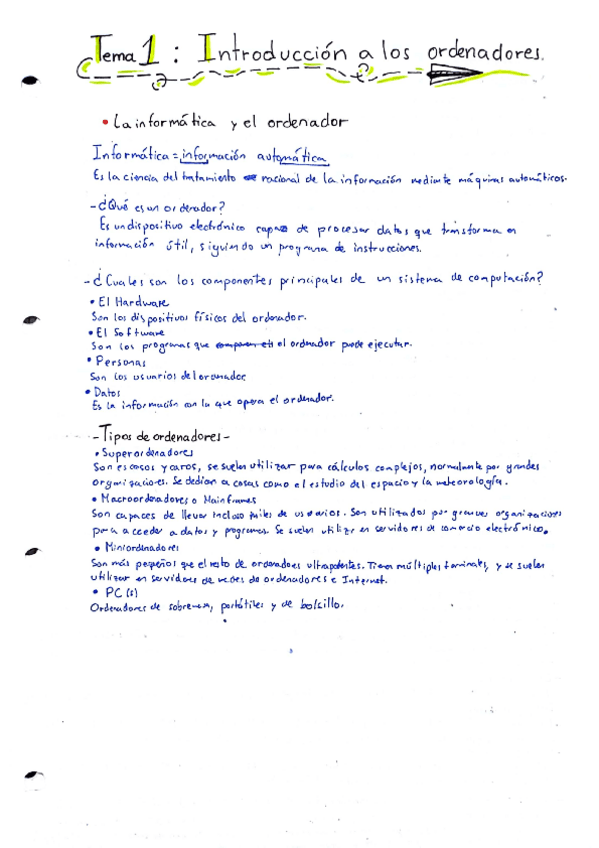 Tema 1 : Introducción a los ordenadores.
• La informática y el ordenador
Informática = información automática
Es la ciencia del tratamiento racional de la información mediante máquinas automáticas.
- ¿Qué es un ordenador?
Es un dispositivo electrónico capaz de procesar datos que transforma en
información útil, siguiendo un programa de instrucciones.
- ¿Cuales son los componentes principales de un sistema de computación?
• El Hardware
Son los dispositivos físicos del ordenador.
• El Software
Son los programas que el ordenador puede ejecutar.
• Personas
Son los usuarios del ordenador
• Datos
Es la información con la que opera el ordenador.
- Tipos de ordenadores -
• Superordenadores
Son escasos y caros, se suelen utilizar para cálculos complejos, normalmente por grandes
organizaciones. Se dedican a cosas como el estudio del espacio y la meteorología.
• Macroordenadores o Mainframes
Son capaces de llevar incluso miles de usuarios. Son utilizados por grandes organizaciones
para acceder a datos y programas. Se suelen utilizar en servidores de comercio electrónico.
• Miniordenadores
Son más pequeños que el resto de ordenadores ultrapotentes. Tienen múltiples terminales, y se suelen
utilizar en servidores de redes de ordenadores e Internet.
• PC(s)
Ordenadores de sobremesa, portátiles y de bolsillo.